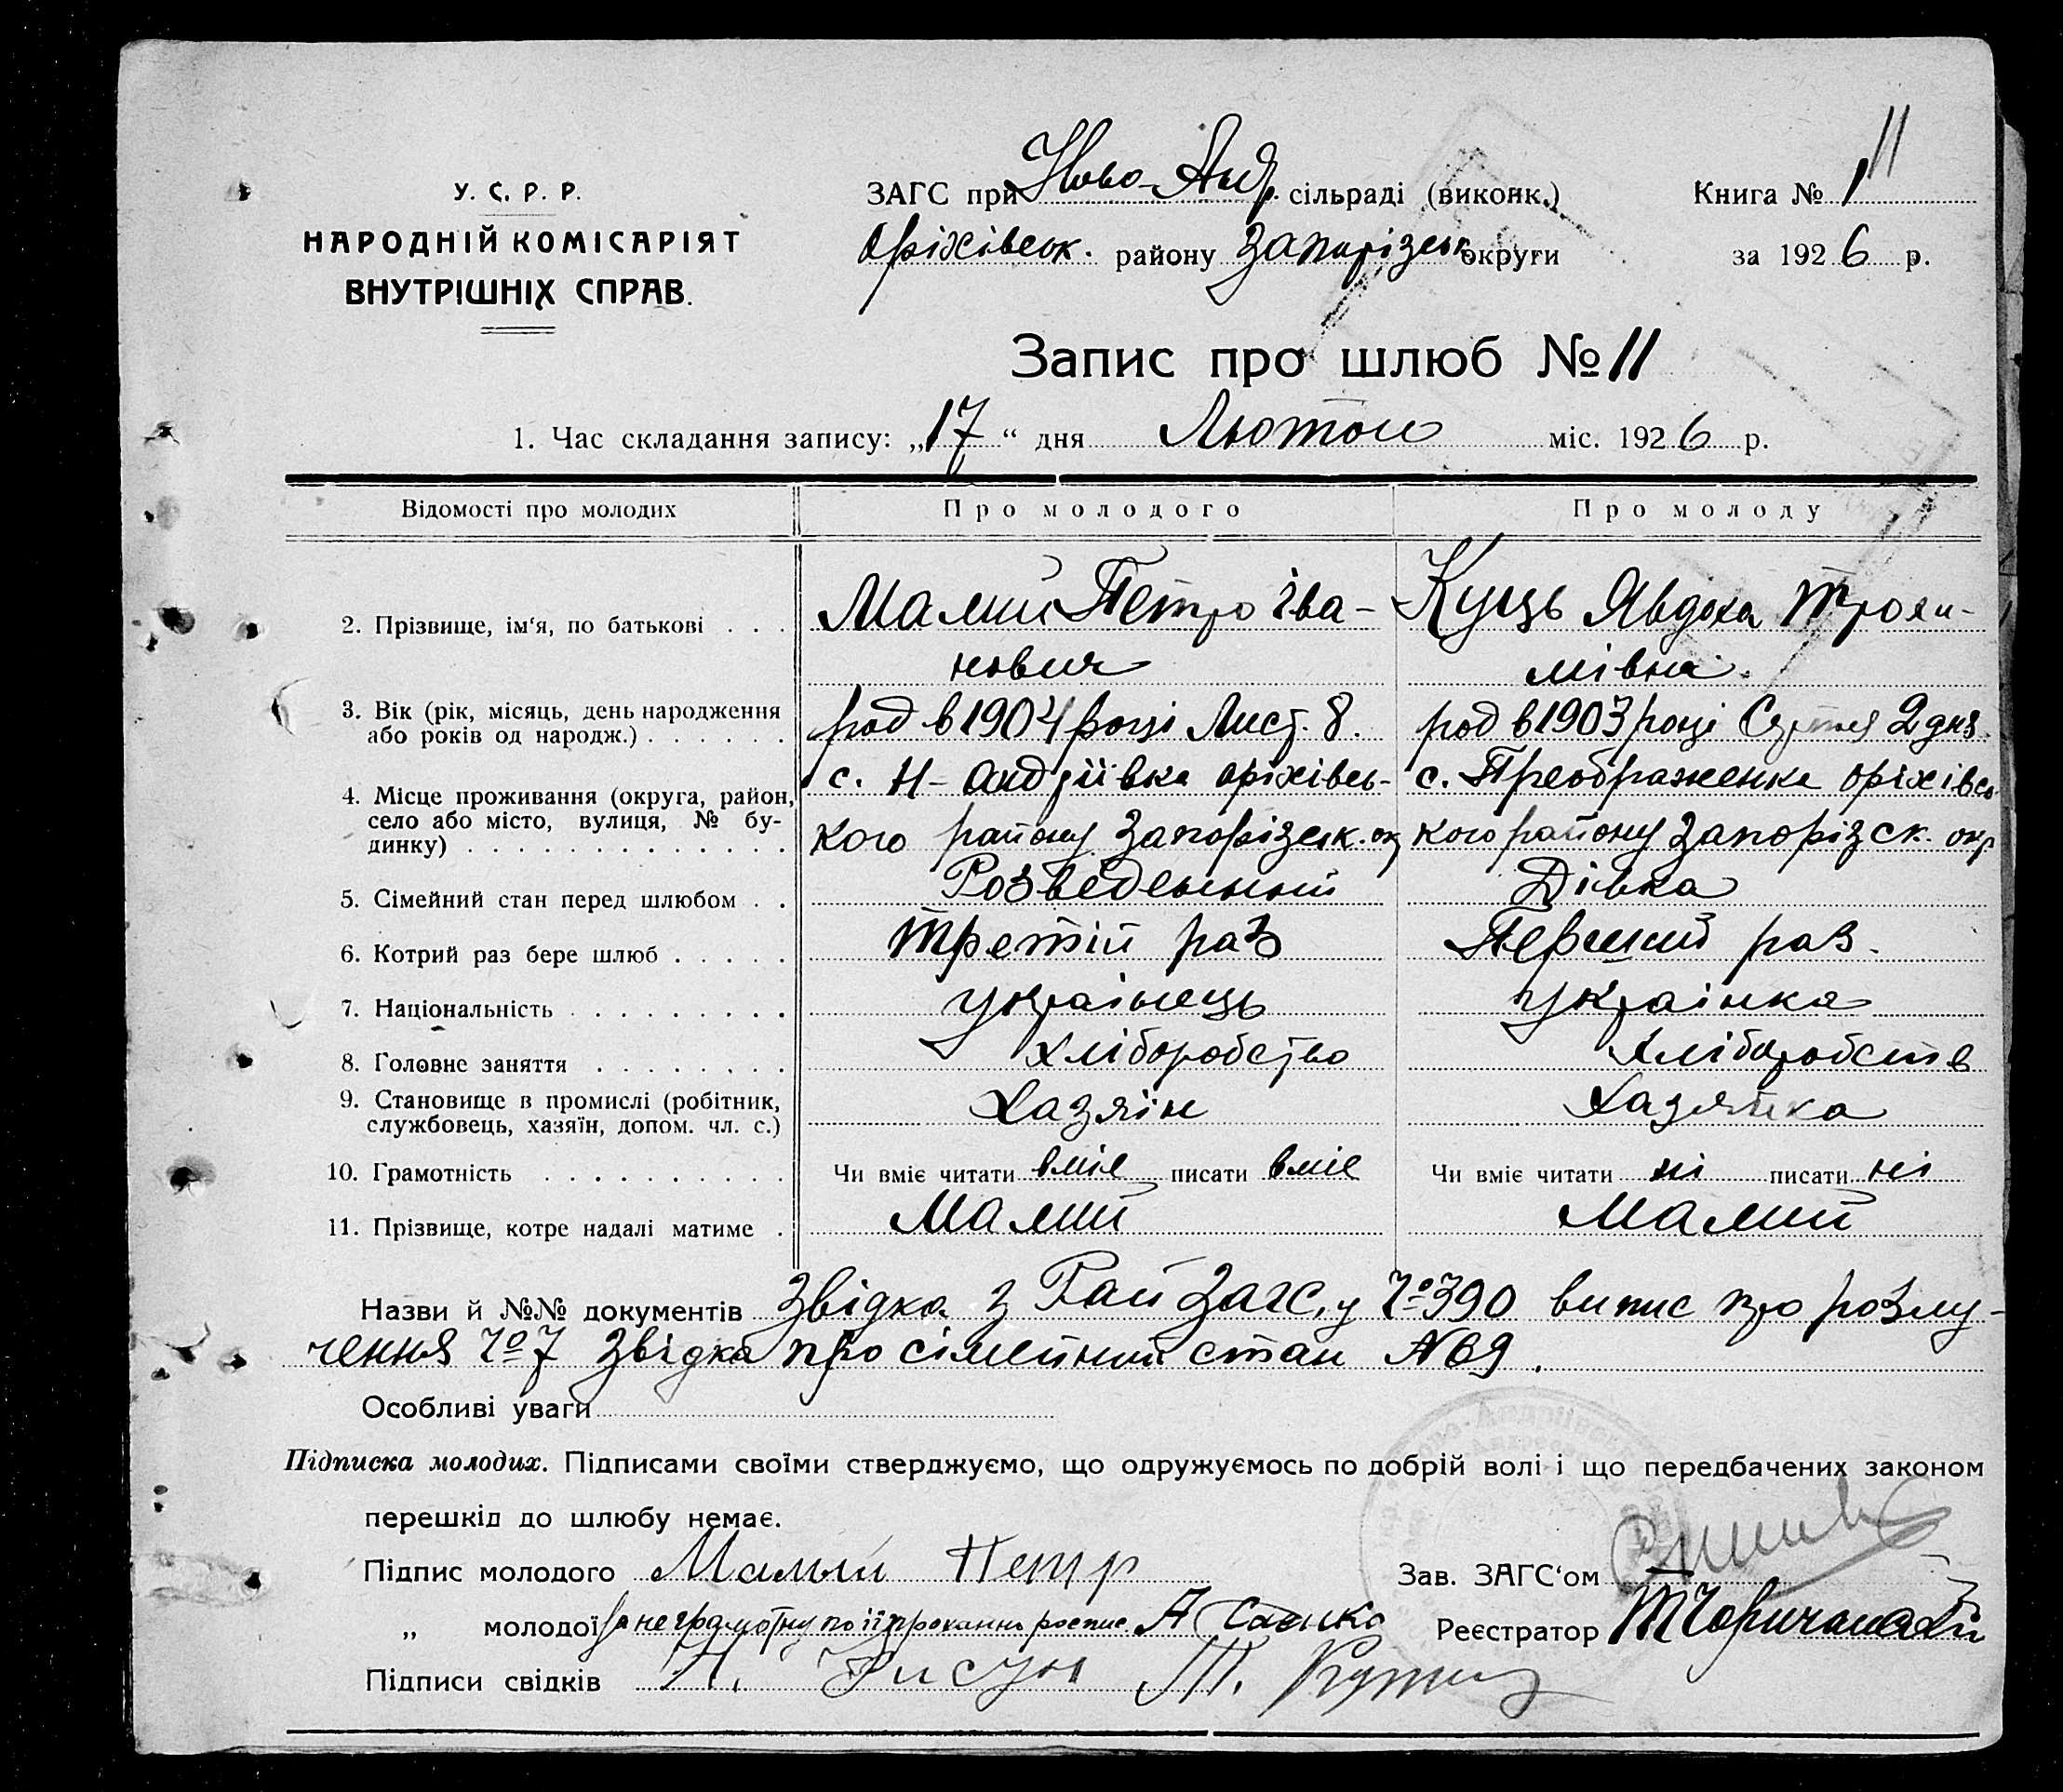 У. С. Р. Р.
НАРОДНІЙ КОМІСАРІЯТ
ВНУТРІШНІХ СПРАВ.
ЗАГС при Ново-Андр. сільраді (виконк.)
Оріхівськ. району Запорізськ округи
Книга № 1
11
за 1926 р.
Запис про шлюб № 11
1. Час складання запису: „17“ дня Лютого міс. 1926 р.
Відомості про молодих Про молодого Про молоду
2. Прізвище, ім'я, по батькові . . . Малий Петро Іва- Куць Явдоха Трохи-
нович мівна.
3. Вік (рік, місяць, день народження род в 1904 році Лист. 8. род в 1903 році Серпня 2 дня
або років од народж.) . . . . . .
4. Місце проживання (округа, район, с. Н-Андріївка Оріхівсь- с. Преображенка Оріхівсь
село або місто, вулиця, № бу-
динку) . . . . . . . . . . . . . кого району Запорізськ. ок кого району Запорізск. окр
5. Сімейний стан перед шлюбом . . Розведенный Дівка
6. Котрий раз бере шлюб . . . . . Третій раз Перший раз.
7. Національність . . . . . . . . . українець українка
8. Головне заняття . . . . . . . . хліборобство хліборобств
9. Становище в промислі (робітник, Хазяїн Хазяйка
службовець, хазяїн, допом. чл. с.)
10. Грамотність . . . . . . . . . . Чи вміє читати вміє писати вміє Чи вміє читати ні писати ні
11. Прізвище, котре надалі матиме . Малий Малий
Назви й №№ документів Звідка з Рай Загс,у № 390 випис про розлу-
чення № 7 Звідка про сімейний стан № 69.
Особливі уваги
Підписка молодих. Підписами своїми стверджуємо, що одружуємось по добрій волі і що передбачених законом
перешкід до шлюбу немає.
Підпис молодого Малый Петр
Зав. ЗАГС'ом
„ молодої за неграмотну по її проханню роспис. А
Реєстратор
Підписи свідків Н. Т.